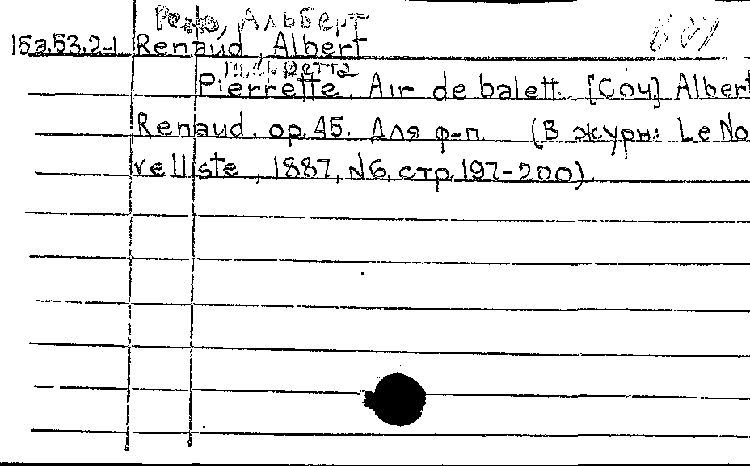 Рено, Альберт
15а.53.2-1 Renaud, Albert
Пьеретта
Pierrette. Air de balett. [Соч] Albert
Renaud. op. 45. Для ф-п. (В журн: Le No
velliste, 1887, N6, стр. 197-200).